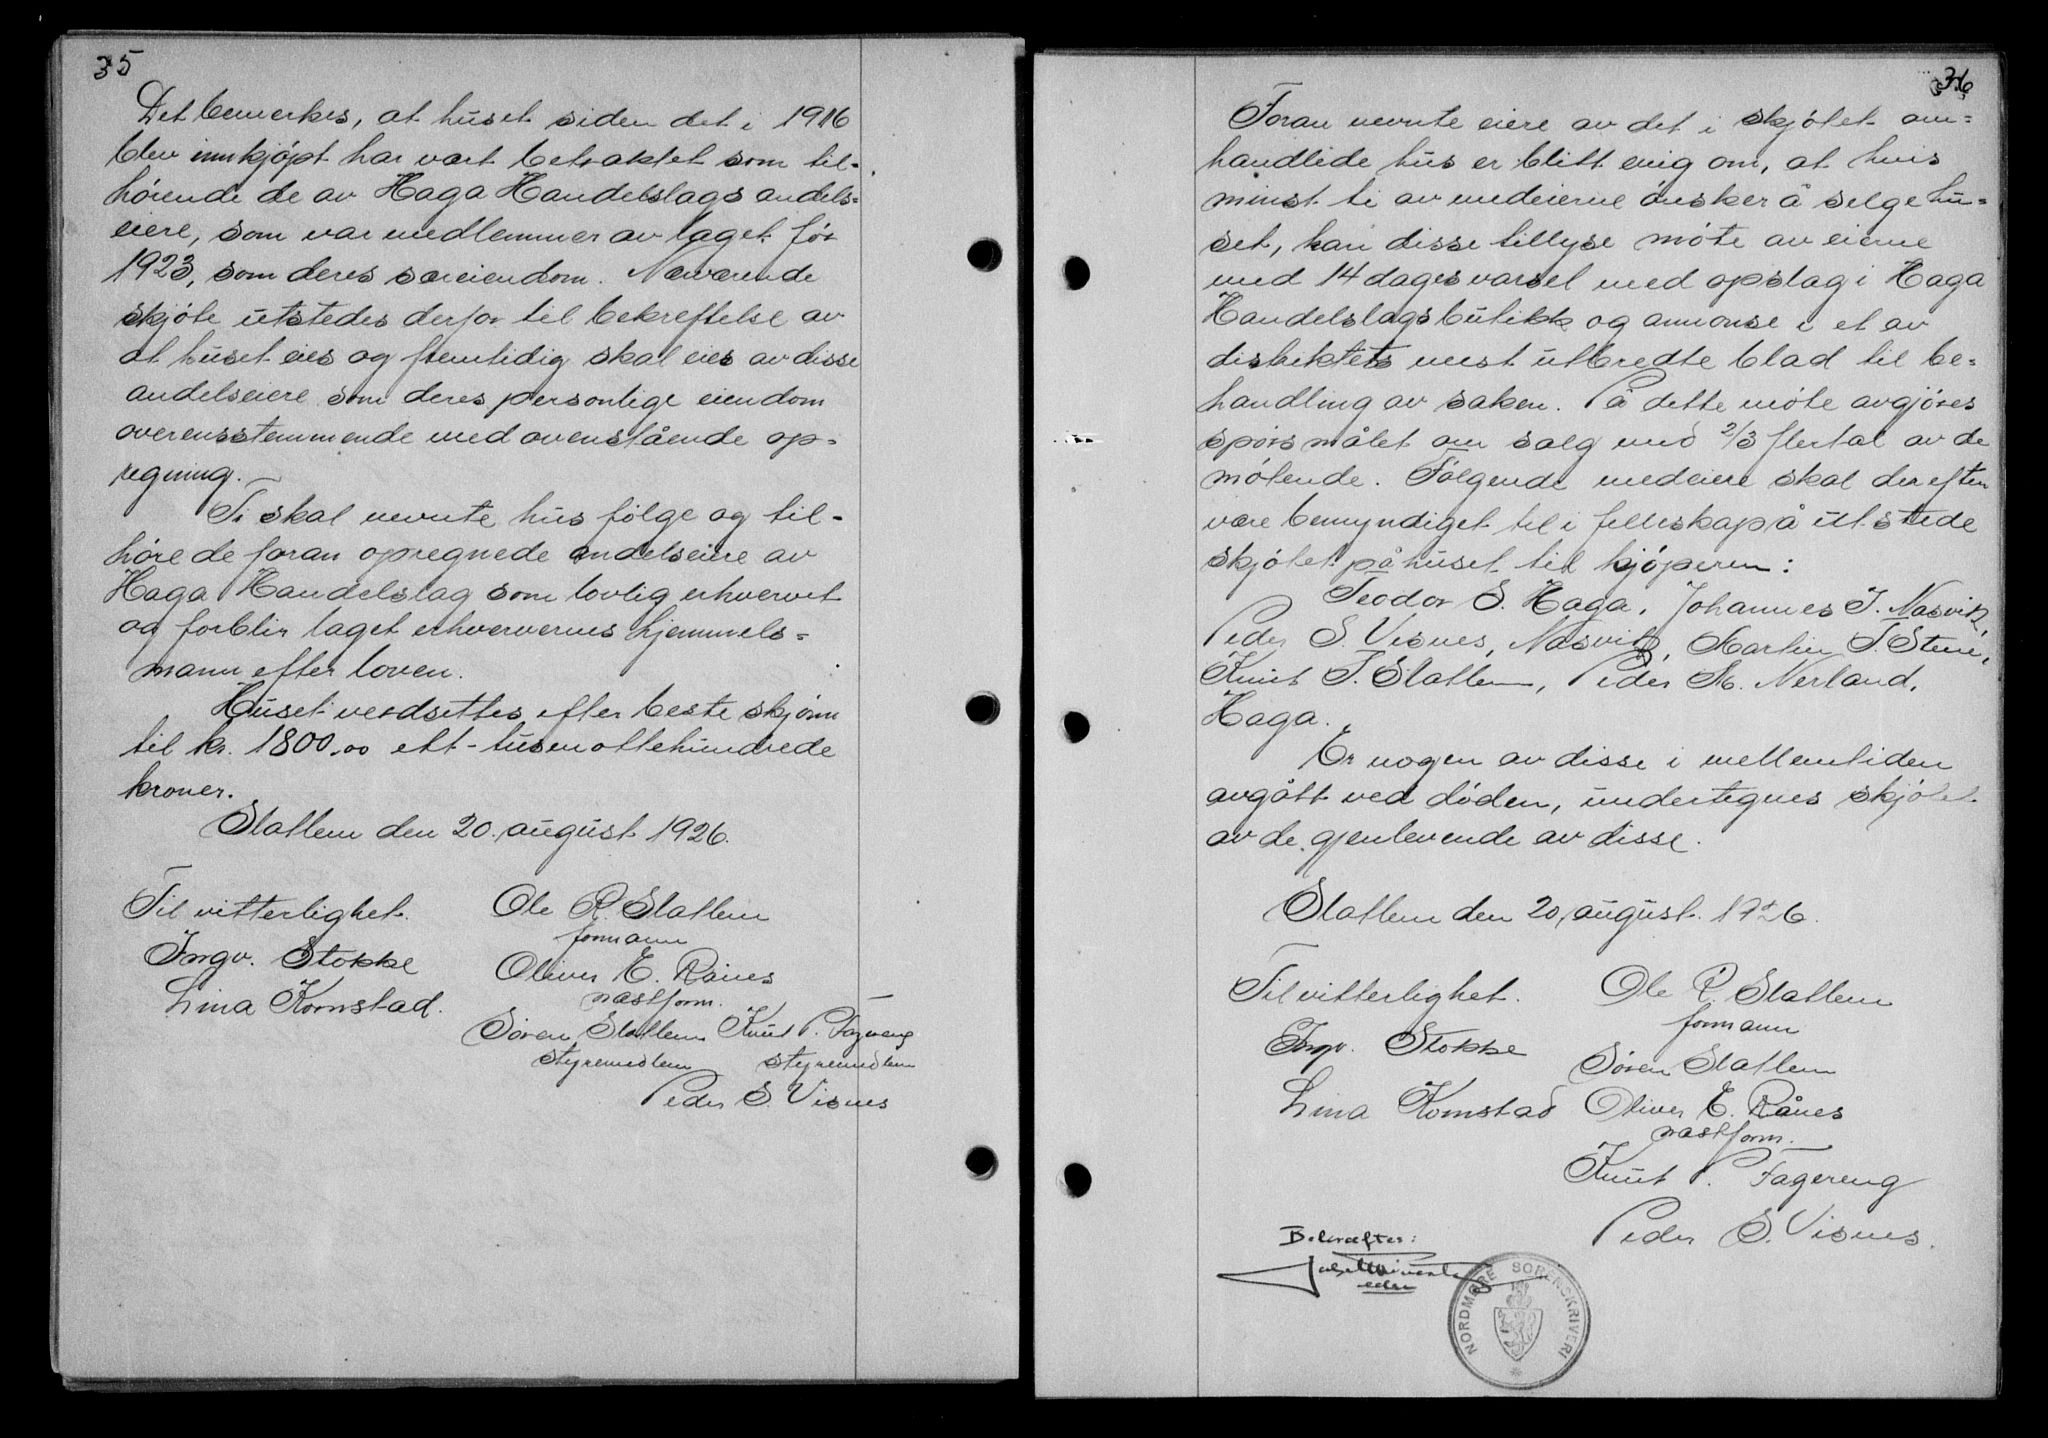 35
Det bemerkes, at huset siden det i 1916
blev innkjøpt har vært betraktet som til-
hørende de av Haga Handelslags andels-
eiere, som var medlemmer av laget før
1923, som deres særeiendom. Nærværende
skjøte utstedes derfor til bekreftelse av
at huset eies og fremtidig skal eies av disse
andelseiere som deres personlige eiendom
overensstemmende med ovenstående op-
regning.
Ti skal nevnte hus følge og til-
høre de foran opregnede andelseiere av
Haga Handelslag som lovlig erhvervet
og forblir laget erhververnes hjemmels-
mann efter loven.
Huset verdsettes efter beste skjønn
til kr. 1800.00 ett-tusenottehundrede
kroner.
Slatlem den 20. august 1926.
Til vitterlighet.
Ingv. Stokke
Lina Kornstad.
Ole R. Slatlem
formann
Oliver E. Rånes
næstform.
Søren Slatlem Knut P. Fagereng
styremedlem styremedlem
Peder S. Visnes
36
Foran nevnte eiere av det i skjøtet om-
handlede hus er blitt enig om, at hvis
minst ti av medeierne ønsker å selge hu-
set, kan disse tillyse møte av eierne
med 14 dages varsel med opslag i Haga
Handelslags butikk og annonse i et av
distriktets mest utbredte blad til be-
handling av saken. På dette møte avgjøres
spørsmålet om salg med 2/3 flertal av de
møtende. Følgende medeiere skal derefter
være bemyndiget til i felleskap å utstede
skjøtet på huset til kjøperen:
Teodor S. Haga, Johannes J. Nasvik,
Peder S. Visnes, Nasvik, Martin S. Stene,
Knut J. Slatlem, Peder M. Nerland,
Haga.
Er nogen av disse i mellemtiden
avgått ved døden, undertegnes skjøtet
av de gjenlevende av disse.
Slatlem den 20, august 1926.
Til vitterlighet.
Ingv. Stokke
Lina Kornstad
Ole R. Slatlem
formann
Søren Slatlem
Oliver E. Rånes
næstform.
Knut P. Fagereng
Peder S. Visnes.
Bekræftes:
NORDMØRE SORENSKRIVERI